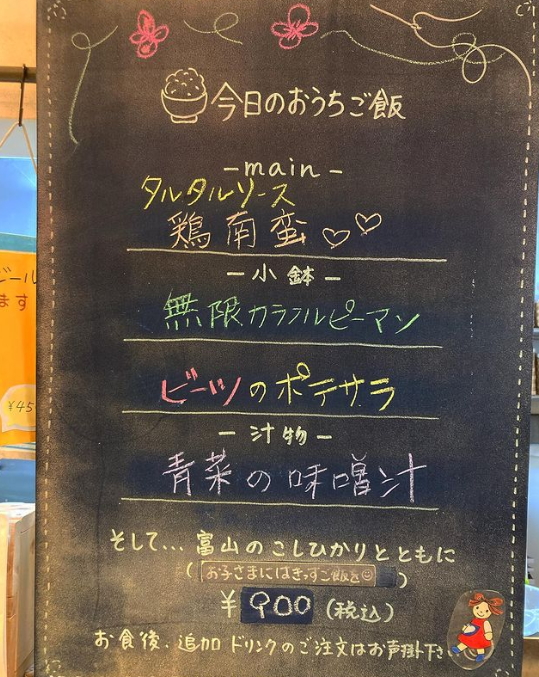 今日のおうちご飯
-main-
タルタルソース
鶏南蛮
-小鉢-
無限カラフルピーマン
ビーツのポテサラ
-汁物-
青菜の味噌汁
そして... 富山のこしひかりとともに
(お子さまにはきっずご飯を)
¥900(税込)
お食後、追加ドリンクのご注文はお声掛下さ
ビール
ます
¥45